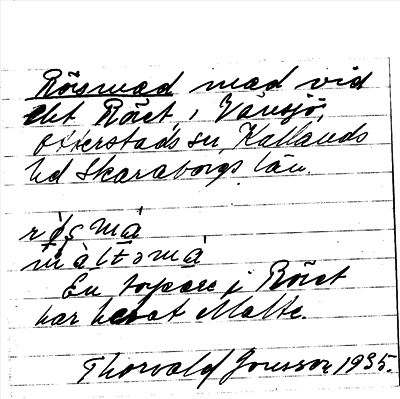 Rösmad mad vid
ett Röret, i Vänsjö,
Otterstads sn, Kållands
hd Skaraborgs län.
rø̀s mà
màltəmà
En torpare i Röret
har hetat Malte.
Thorvald Jonsson 1935.